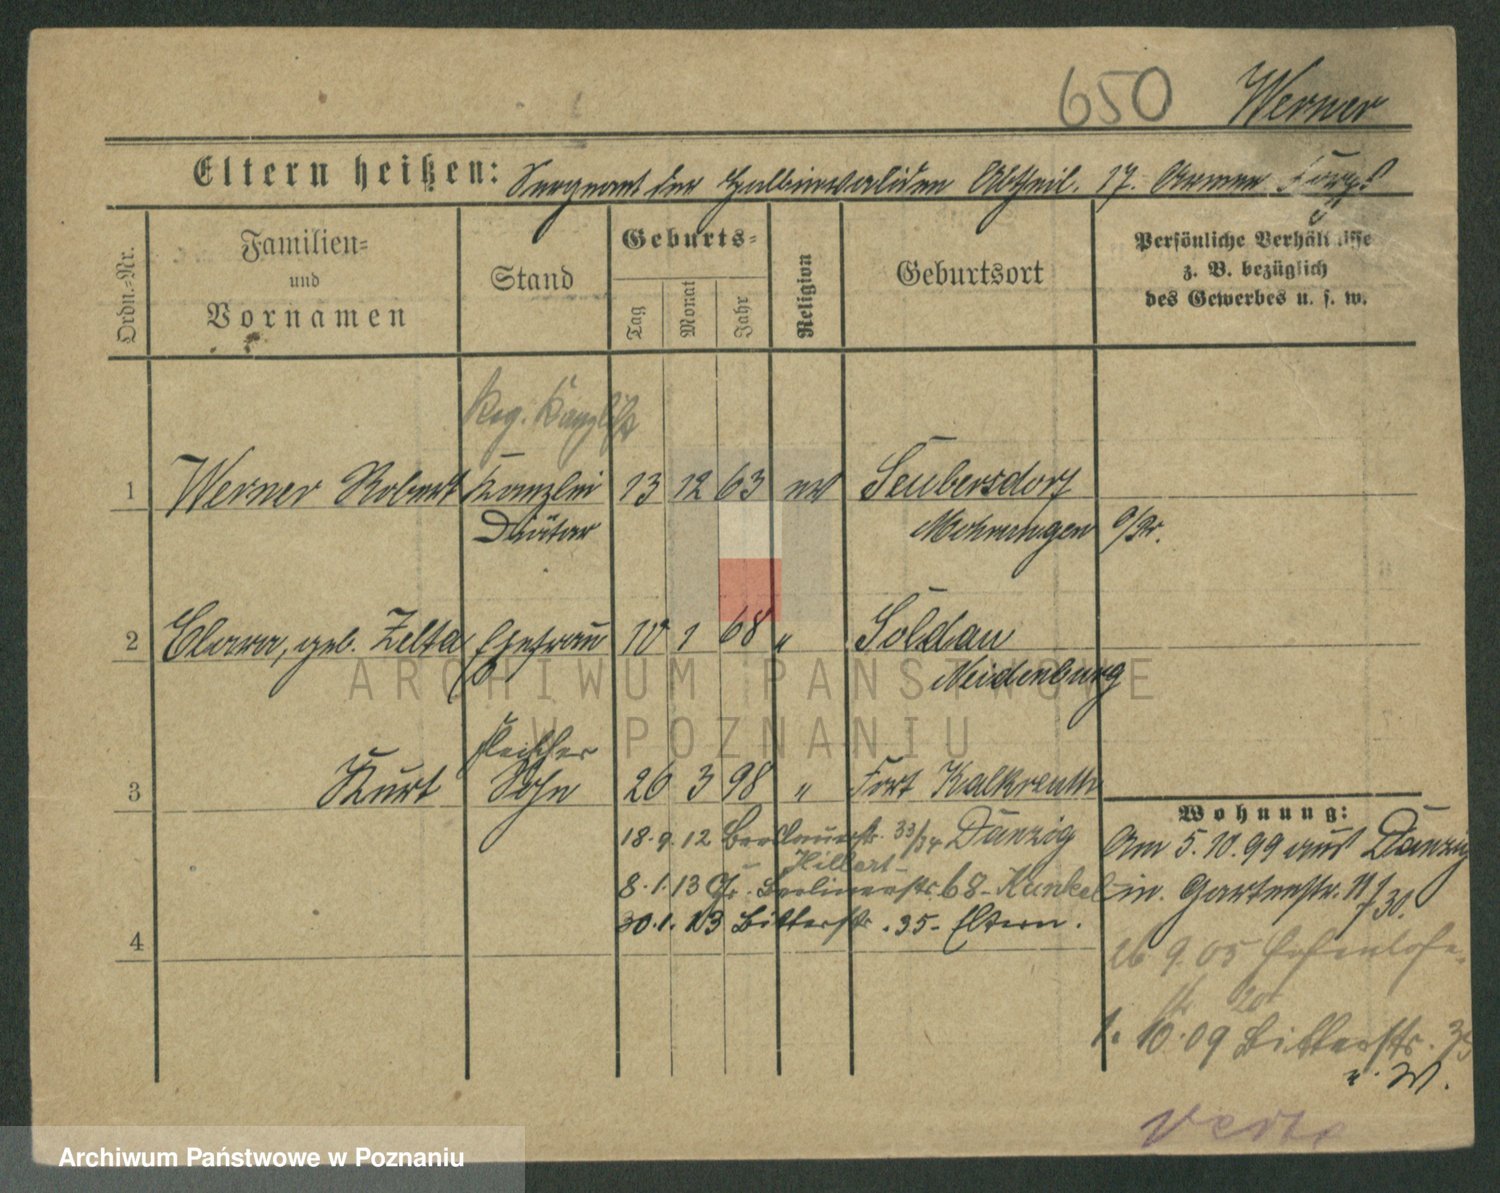 650 Werner
Eltern heißen: Sergeant der Halbinvaliden Abtheil. 17. Armee Korps
Ordn.-Nr.
Familien-
und
Vornamen
Stand
Geburts-
Tag
Monat
Jahr
Religion
Geburtsort
Persönliche Verhältnisse
z. B. bezüglich
des Gewerbes u. s. w.
Reg. Kanzlist
1 Werner Robert Kanzlei 13 12 63 ev Seubersdorf
Diätar Mohrungen O/Pr.
2 Clara, geb. Zelta Ehefrau 10 1 68 " Soldau
Neidenburg
Fleischer
3 Kurt Sohn 26 3 98 " Fort Kalkreuth
Wohnung:
18.9.12 Breslauerstr. 33/34 Danzig
Hillert
8.1.13 Gr. Berlinerstr. 68 - Kunkel
30.1.13 Bitterstr. 35 - Eltern.
4
Am 5.10.99 aus Danzig
in Gartenstr. 11
26 9.05 Hohenlohe-
str 20
1. 10.09 Bitterstr. 35
v. W.
verte
ARCHIWUM PAŃSTWOWE
W POZNANIU
Archiwum Państwowe w Poznaniu